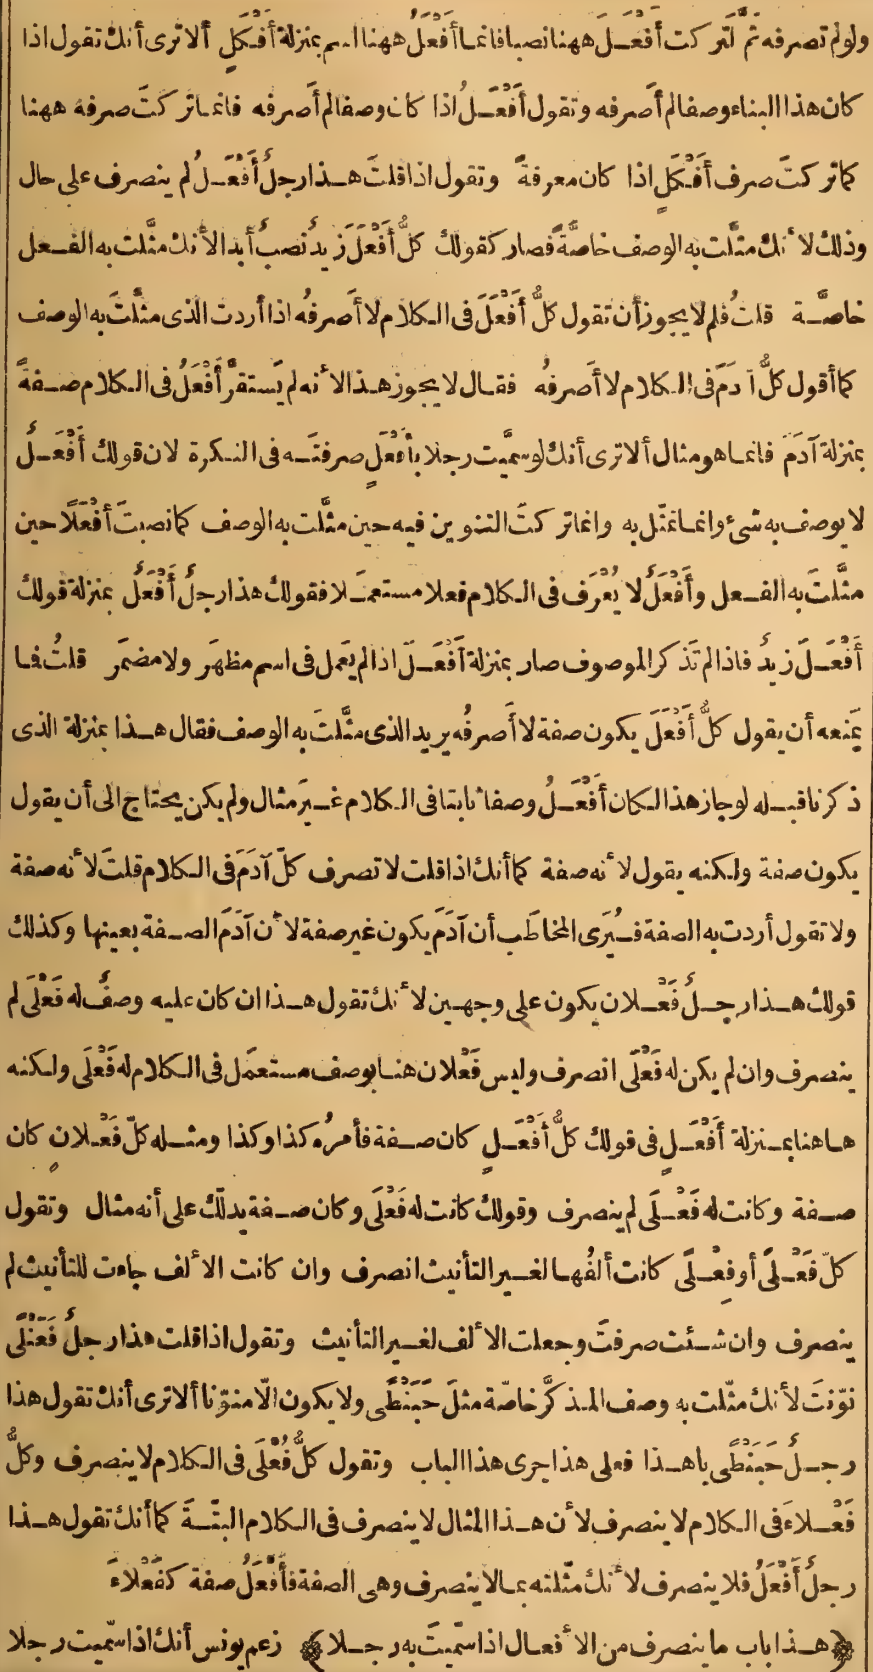 ولولم تصرفه ثَمَّ لتركت أَفْعَـلَ ههنا نصبا فانما أَفْعَلُ ههنا اسم بمنزلة أَفْكَلٍ ألا ترى أنك تقول اذا
كان هذا البناء وصفا لم أَصرفه وتقول أَفْعَـلُ اذا كان وصفا لم أَصرفه فانما تركتَ صرفه ههنا
كما تركتَ صرف أَفْكَلٍ اذا كان معرفةً وتقول اذا قلتَ هـذا رجلٌ أَفْعَـلُ لم ينصرف على حال
وذلك لأنك مثَّلت به الوصف خاصَّةً فصار كقولك كلُّ أَفْعَلَ زيدٌ نصبٌ أبدا لأنك مثَّلت به الفـعل
خاصَّـة قلتُ فلم لا يجوز أن تقول كلُّ أَفْعَلَ فى الكلام لا أَصرفُه اذا أردت الذى مثَّلتَ به الوصف
كما أقول كلُّ آدَمَ فى الكلام لا أَصرفُه فقـال لا يجوز هـذا لأنه لم يَستقرَّ أَفْعَلُ فى الـكلام صـفةً
بمنزلة آدَمَ فانمـا هو مثال ألا ترى أنك لو سمَّيت رجلا بأَفْعَلٍ صرفتَـه فى النـكرة لان قولك أَفْعَـلُ
لا يوصف به شىء وانمـا تمثّل به وانما تركتَ التنوين فيه حين مثَّلت به الوصف كما نصبتَ أَفْعَلًا حين
مثَّلتَ به الفـعل وأَفْعَلُ لا يُعْرَف فى الـكلام فعلا مستعمـَلا فقولك هذا رجلٌ أَفْعَلُ بمنزلة قولك
أَفْعَـلَ زيدٌ فاذا لم تَذكر الموصوف صار بمنزلة أَفْعَـلَ اذا لم يَعمل فى اسم مظهَر ولا مضمَر قلتُ فما
يَمنعه أن يقول كلُّ أَفْعَلَ يكون صفة لا أَصرفُه يريد الذى مثَّلتَ به الوصف فقال هـذا بمنزلة الذى
ذكرنا قبـله لو جاز هذا لـكان أَفْعَـلُ وصفا ثابتا فى الـكلام غـيرَ مثال ولم يكن يحتاج الى أن يقول
يكون صفة ولـكنه يقول لأنه صفة كما أنك اذا قلت لا تصرف كلَّ آدَمَ فى الـكلام قلتَ لأنه صفة
ولا تقول أردت به الصفة فـيُرَى المخاطَب أن آدَمَ يكون غير صفة لأن آدَمَ الصـفة بعينها وكذلك
قولك هـذا رجـلٌ فَعْـلان يكون على وجهـين لأنك تقول هـذا ان كان عليه وصفٌ له فَعْلَى لم
ينصرف وان لم يكن له فَعْلَى انصرف وليس فَعْلان هنـا بوصف مستعمَل فى الـكلام له فَعْلَى ولـكنه
هـاهنا بمـنزلة أَفْعَـلٍ فى قولك كلُّ أَفْعَـلٍ كان صـفة فأمرُه كذا وكذا ومثـله كلّ فَعْـلانٍ كان
صـفة وكانت له فَعْـلَى لم ينصرف وقولك كانت له فَعْلَى وكان صـفة يدلّك على أنه مثال وتقول
كلّ فَعْـلًى أو فِعْـلًى كانت ألفُهـا لغـير التأنيث انصرف وان كانت الألف جاءت للتأنيث لم
ينصرف وان شـئت صرفتَ وجعلت الألف لغـير التأنيث وتقول اذا قلت هذا رجلٌ فَعَنْلًى
نوّنتَ لأنك مثّلت به وصف المـذكَّر خاصّة مثلَ حَبَنْطًى ولا يكون الّا منوّنا ألا ترى أنك تقول هذا
رجـلٌ حَبَنْطًى يا هـذا فعلى هذا جرى هذا الباب وتقول كلُّ فُعْلَى فى الـكلام لا ينصرف وكلُّ
فَعْـلاءَ فى الـكلام لا ينصرف لأن هـذا المثال لا ينصرف فى الـكلام البتّـةَ كما أنك تقول هـذا
رجلٌ أَفْعَلُ فلا ينصرف لأنك مثّلته بمـا لا ينصرف وهى الصفة فأَفْعَلُ صفة كفَعْلاءَ
﴿هـذا باب ما ينصرف من الأفعـال اذا سمّيتَ به رجـلا﴾ زعم يونس أنك اذا سمّيت رجلا